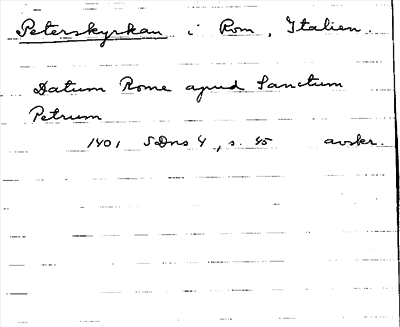 Peterskyrkan i Rom, Italien.
Datum Rome apud Sanctum
Petrum
1401 SDns 4, s. 45 avskr.